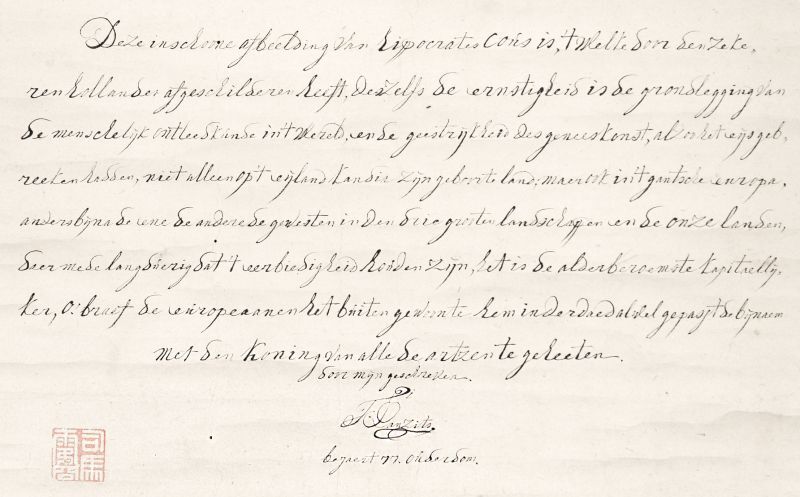 Deze inschome afbeelding van Hippocrates Coüs is, 't welke door den zeke,
ren hollander afgeschilderen heeft, dezelfs de ernstigheid is de grondlegging van
de menschelijk ontleedkunde in't wereld, en de geestrijkheid des geneeskonst, al
reeken hadden, niet alleen op't eijland kandia zijn geboorte land, maer ook in't gantsche europa,
anders bijna de ene de andere de gewesten in den drie grooten landschappen en de onze landen,
deer mede langdüerig dat 't eerbiedigheid houden zijn, het is de alderberoemste kapitaellij,
ker, O! braef de europeaanen het büiten gewoonte hem inderdaed alwel gepast de bijnaem
met den koning van alle de artzen te geheeten.
door mijn geschreven.
bejaert 77. ouderdom.
司馬